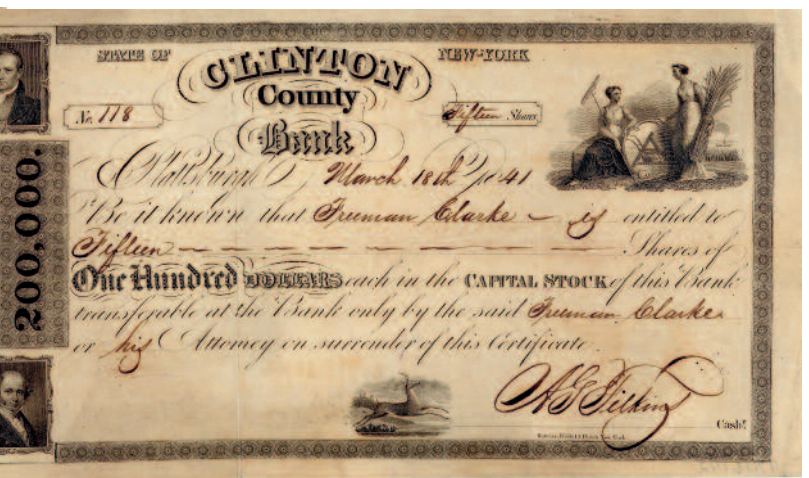 STATE OF
NEW-YORK
CLINTON
County
Bank
No. 118
Fifteen Shares
Plattsburgh March 18th 1841
Be it known that Freeman Clarke – is entitled to
Fifteen – – – – – – – – Shares of
One Hundred DOLLARS each in the CAPITAL STOCK of this Bank
transferable at the Bank only by the said Freeman Clarke
or his Attorney on surrender of this Certificate.
Cashr.
200,000.